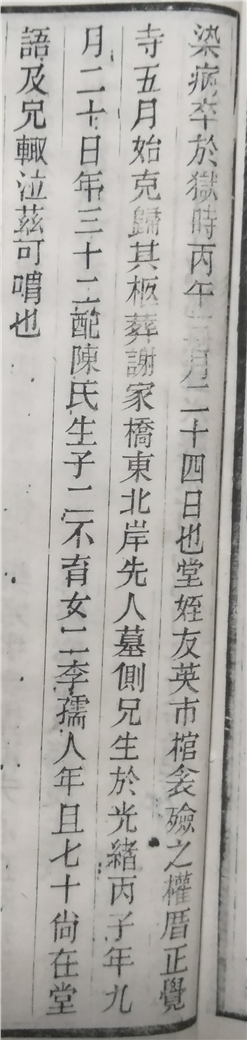 染病卒於獄時丙午 月二十四日也堂姪友英市棺衾殮之權厝正覺
寺五月始克歸其柩葬謝家橋東北岸先人墓側兄生於光緒丙子年九
月二十日年三十二配陳氏生子二不育女二李孺人年且七十尙在堂
語及兄輒泣茲可喟也